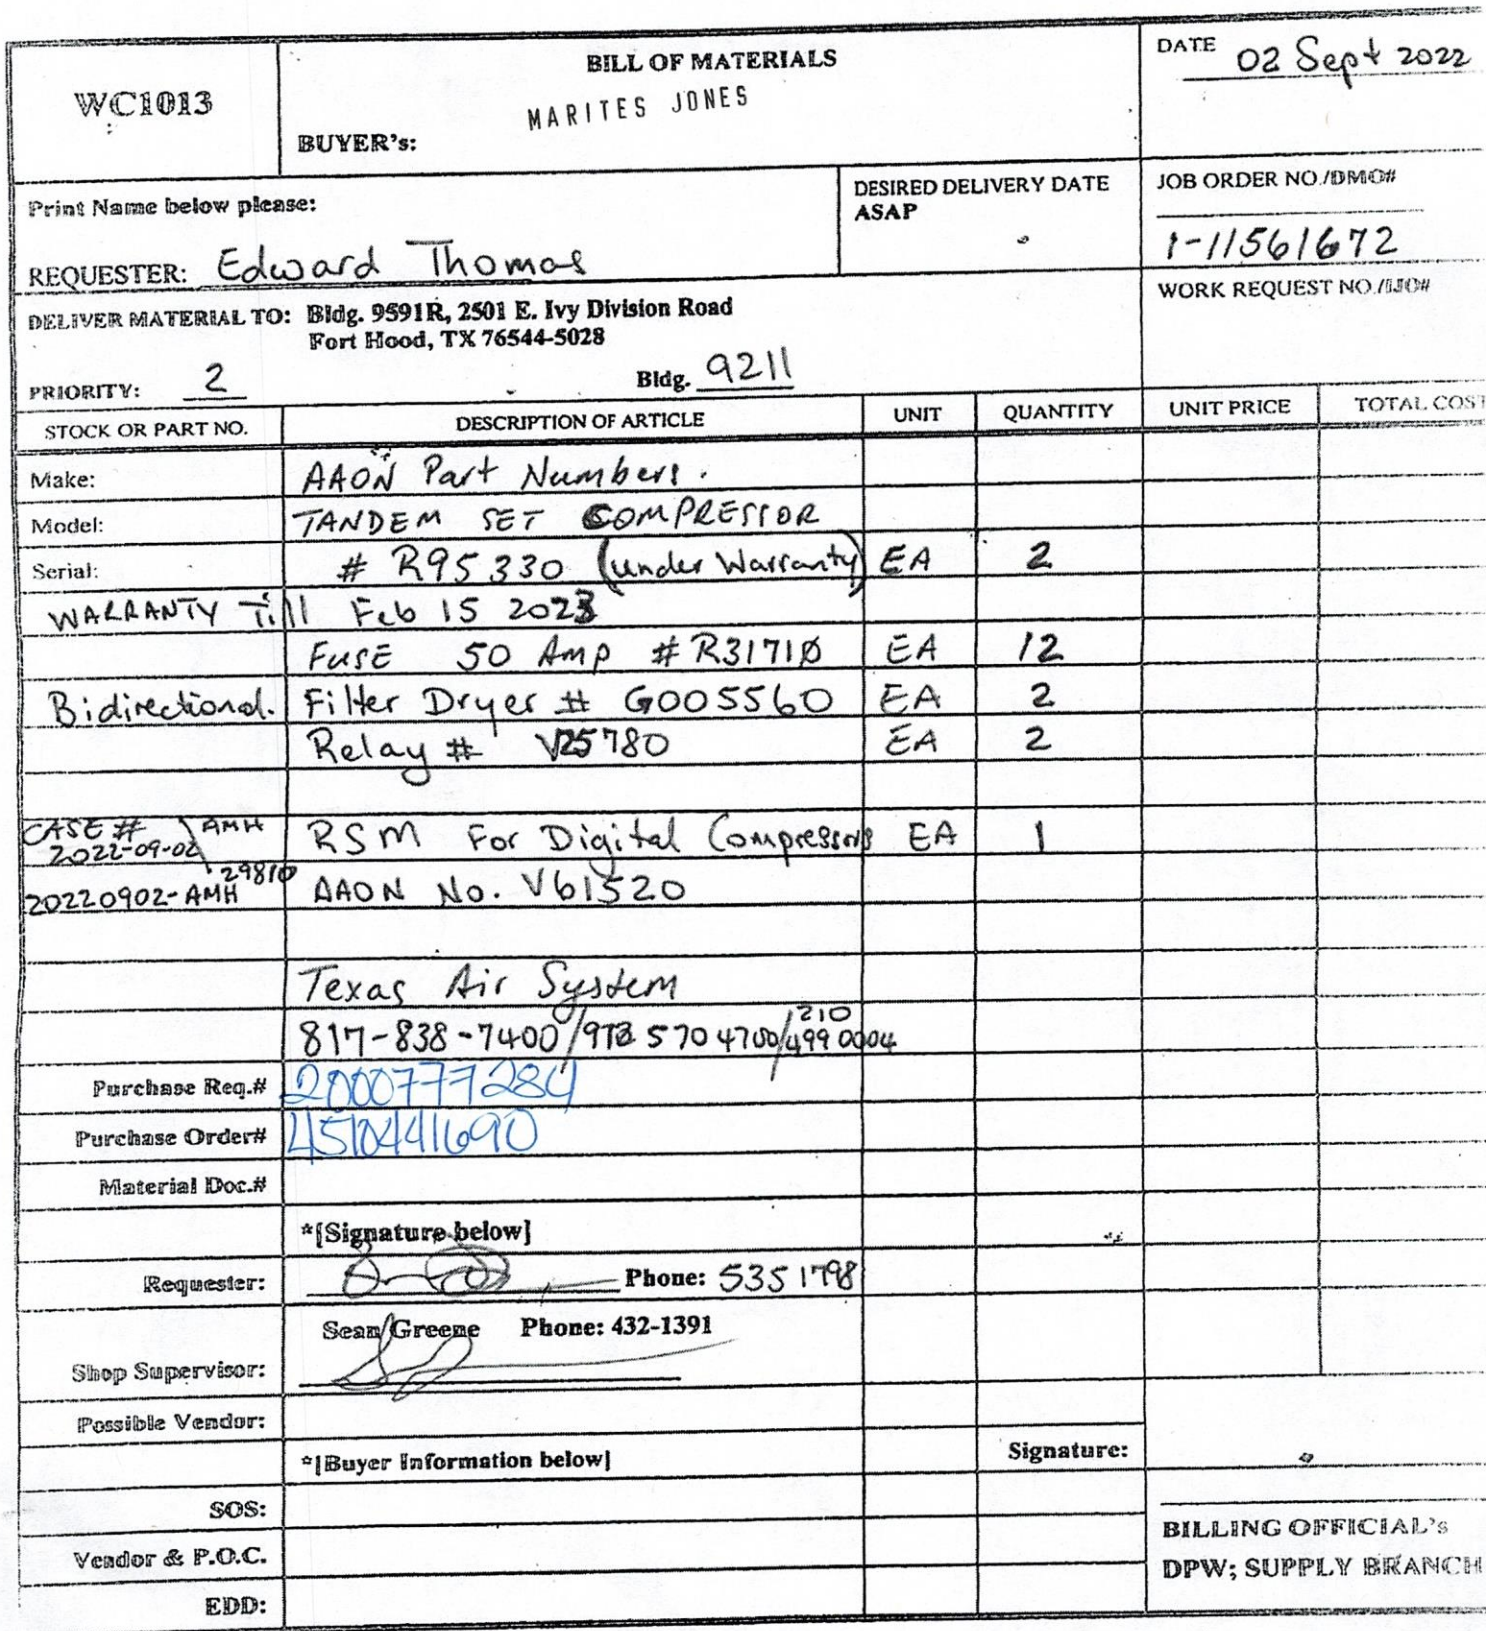 WC1013
BILL OF MATERIALS
MARITES JONES
BUYER's:
DATE 02 Sept 2022
Print Name below please:
REQUESTER: Edward Thomas
DESIRED DELIVERY DATE
ASAP
JOB ORDER NO./DMO#
1-11561672
DELIVER MATERIAL TO: Bldg. 9591R, 2501 E. Ivy Division Road
Fort Hood, TX 76544-5028
WORK REQUEST NO./IJO#
PRIORITY: 2 Bldg. 9211
STOCK OR PART NO. DESCRIPTION OF ARTICLE UNIT QUANTITY UNIT PRICE TOTAL COST
Make: AAON Part Numbers.
Model: TANDEM SET COMPRESSOR
Serial: # R95330 (under Warranty) EA 2
WARRANTY Till Feb 15 2023
FUSE 50 Amp # R31710 EA 12
Bidirectional. Filter Dryer # G005560 EA 2
Relay # V25780 EA 2
CASE # AMH RSM For Digital Compressors EA 1
2022-09-02
29810
20220902-AMH AAON No. V61520
Texas Air System
817-838-7400/972 570 4700/210 499 0004
Purchase Req.# 2000777284
Purchase Order# 4510441690
Material Doc.#
*[Signature below]
Requester: Phone: 535 1798
Sean Greene Phone: 432-1391
Shop Supervisor:
Possible Vendor:
*[Buyer Information below] Signature:
SOS:
Vendor & P.O.C.
EDD:
BILLING OFFICIAL's
DPW; SUPPLY BRANCH